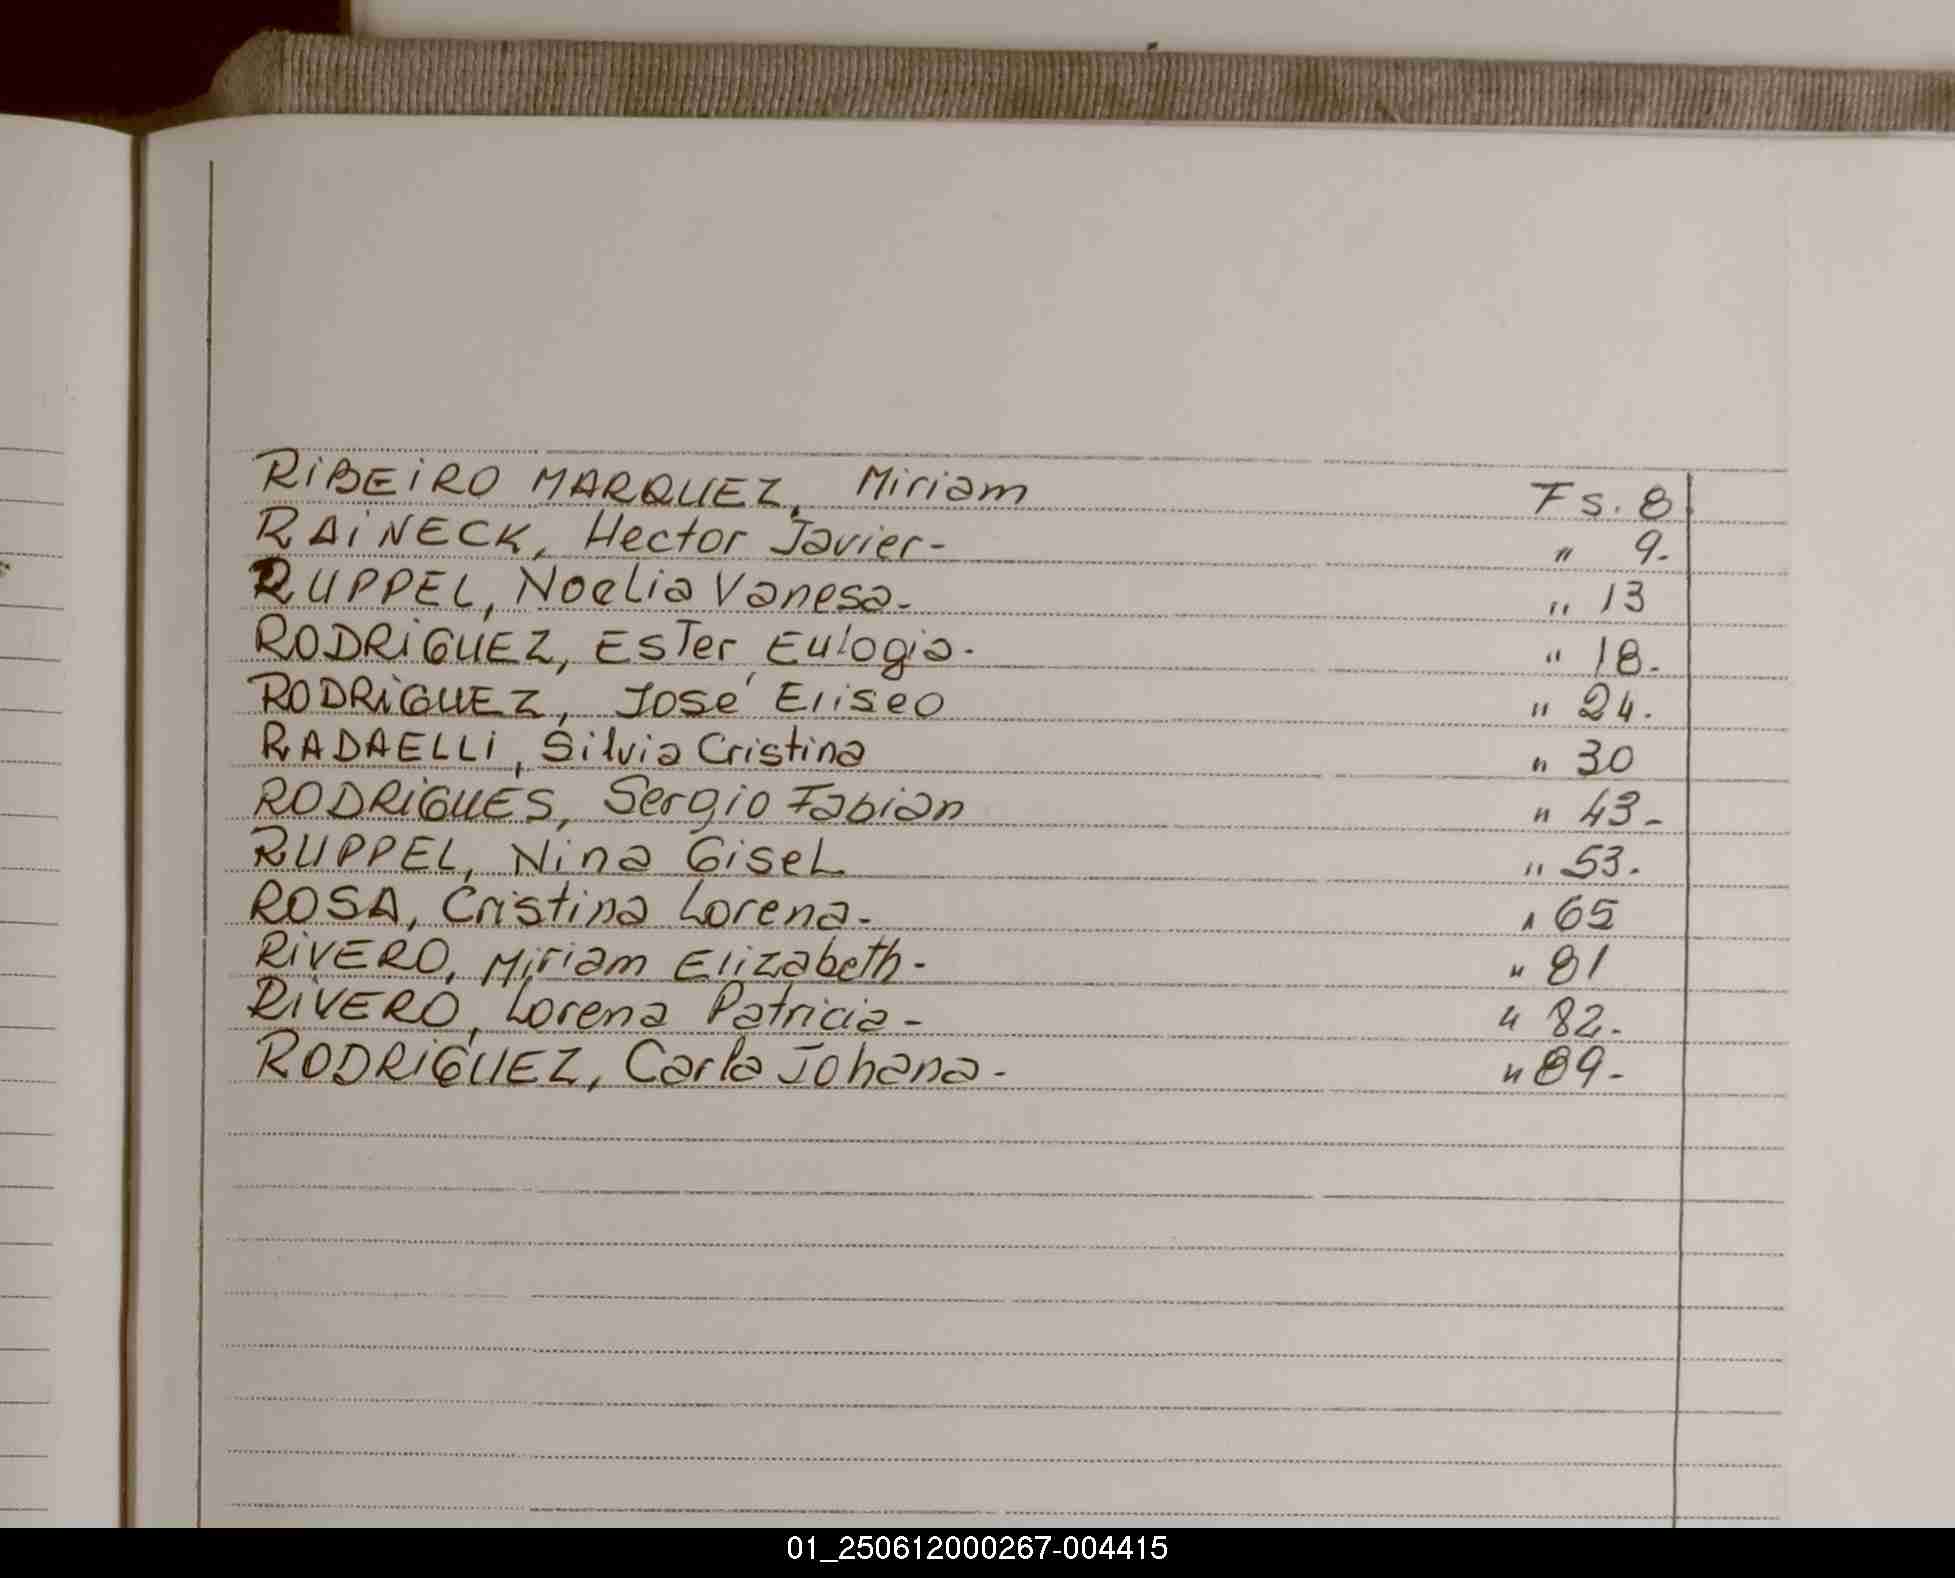 RIBEIRO MARQUEZ, Miriam Fs. 8.
RAINECK, Hector Javier- " 9.-
RUPPEL, Noelia Vanesa.- " 13
RODRIGUEZ, Ester Eulogia.- " 18.-
RODRIGUEZ, José Eliseo " 24.-
RADAELLI, Silvia Cristina " 30
RODRIGUES, Sergio Fabian " 43.-
RUPPEL, Nina Gisel " 53.-
ROSA, Cristina Lorena.- " 65
RIVERO, Miriam Elizabeth.- " 81
RIVERO, Lorena Patricia- " 82.-
RODRIGUEZ, Carla Johana.- " 89.-
01_250612000267-004415